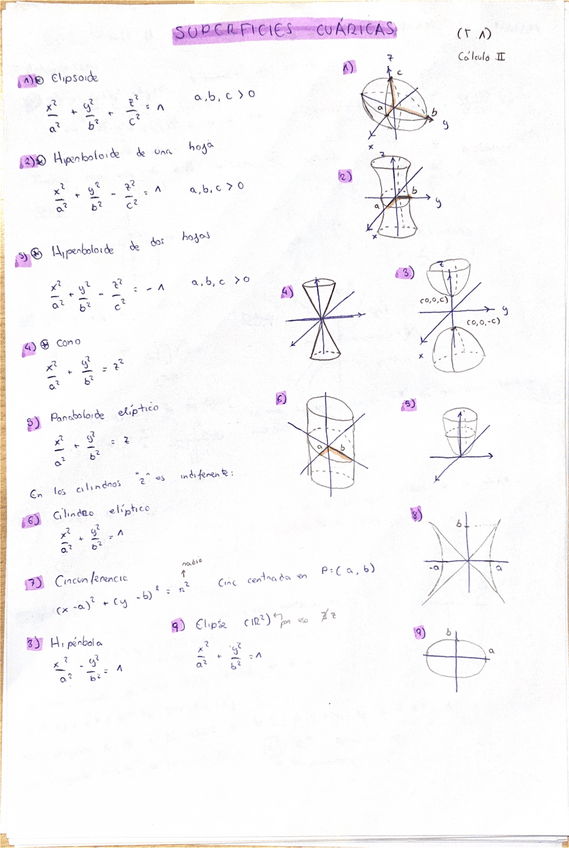 SUPERFICIES CUÁDRICAS
(T.1)
Cálculo II
1) Elipsoide
x²/a² + y²/b² + z²/c² = 1 a, b, c > 0
2) Hiperboloide de una hoja
x²/a² + y²/b² - z²/c² = 1 a, b, c > 0
3) Hiperboloide de dos hojas
x²/a² + y²/b² - z²/c² = -1 a, b, c > 0
4) Cono
x²/a² + y²/b² = z²
5) Paraboloide elíptico
x²/a² + y²/b² = z
En los cilindros "z" es indiferente:
6) Cilindro elíptico
x²/a² + y²/b² = 1
7) Circunferencia
radio
(x - a)² + (y - b)² = r² Circ centrada en P = (a, b)
8) Hipérbola
x²/a² - y²/b² = 1
9) Elipse (R²) por eso ∄ z
x²/a² + y²/b² = 1
1)
z
c
a
b
y
x
2)
z
a
b
y
x
3)
z
(0,0,c)
y
(0,0,-c)
x
4)
5)
6)
a
b
8)
b
-a
a
9)
b
a